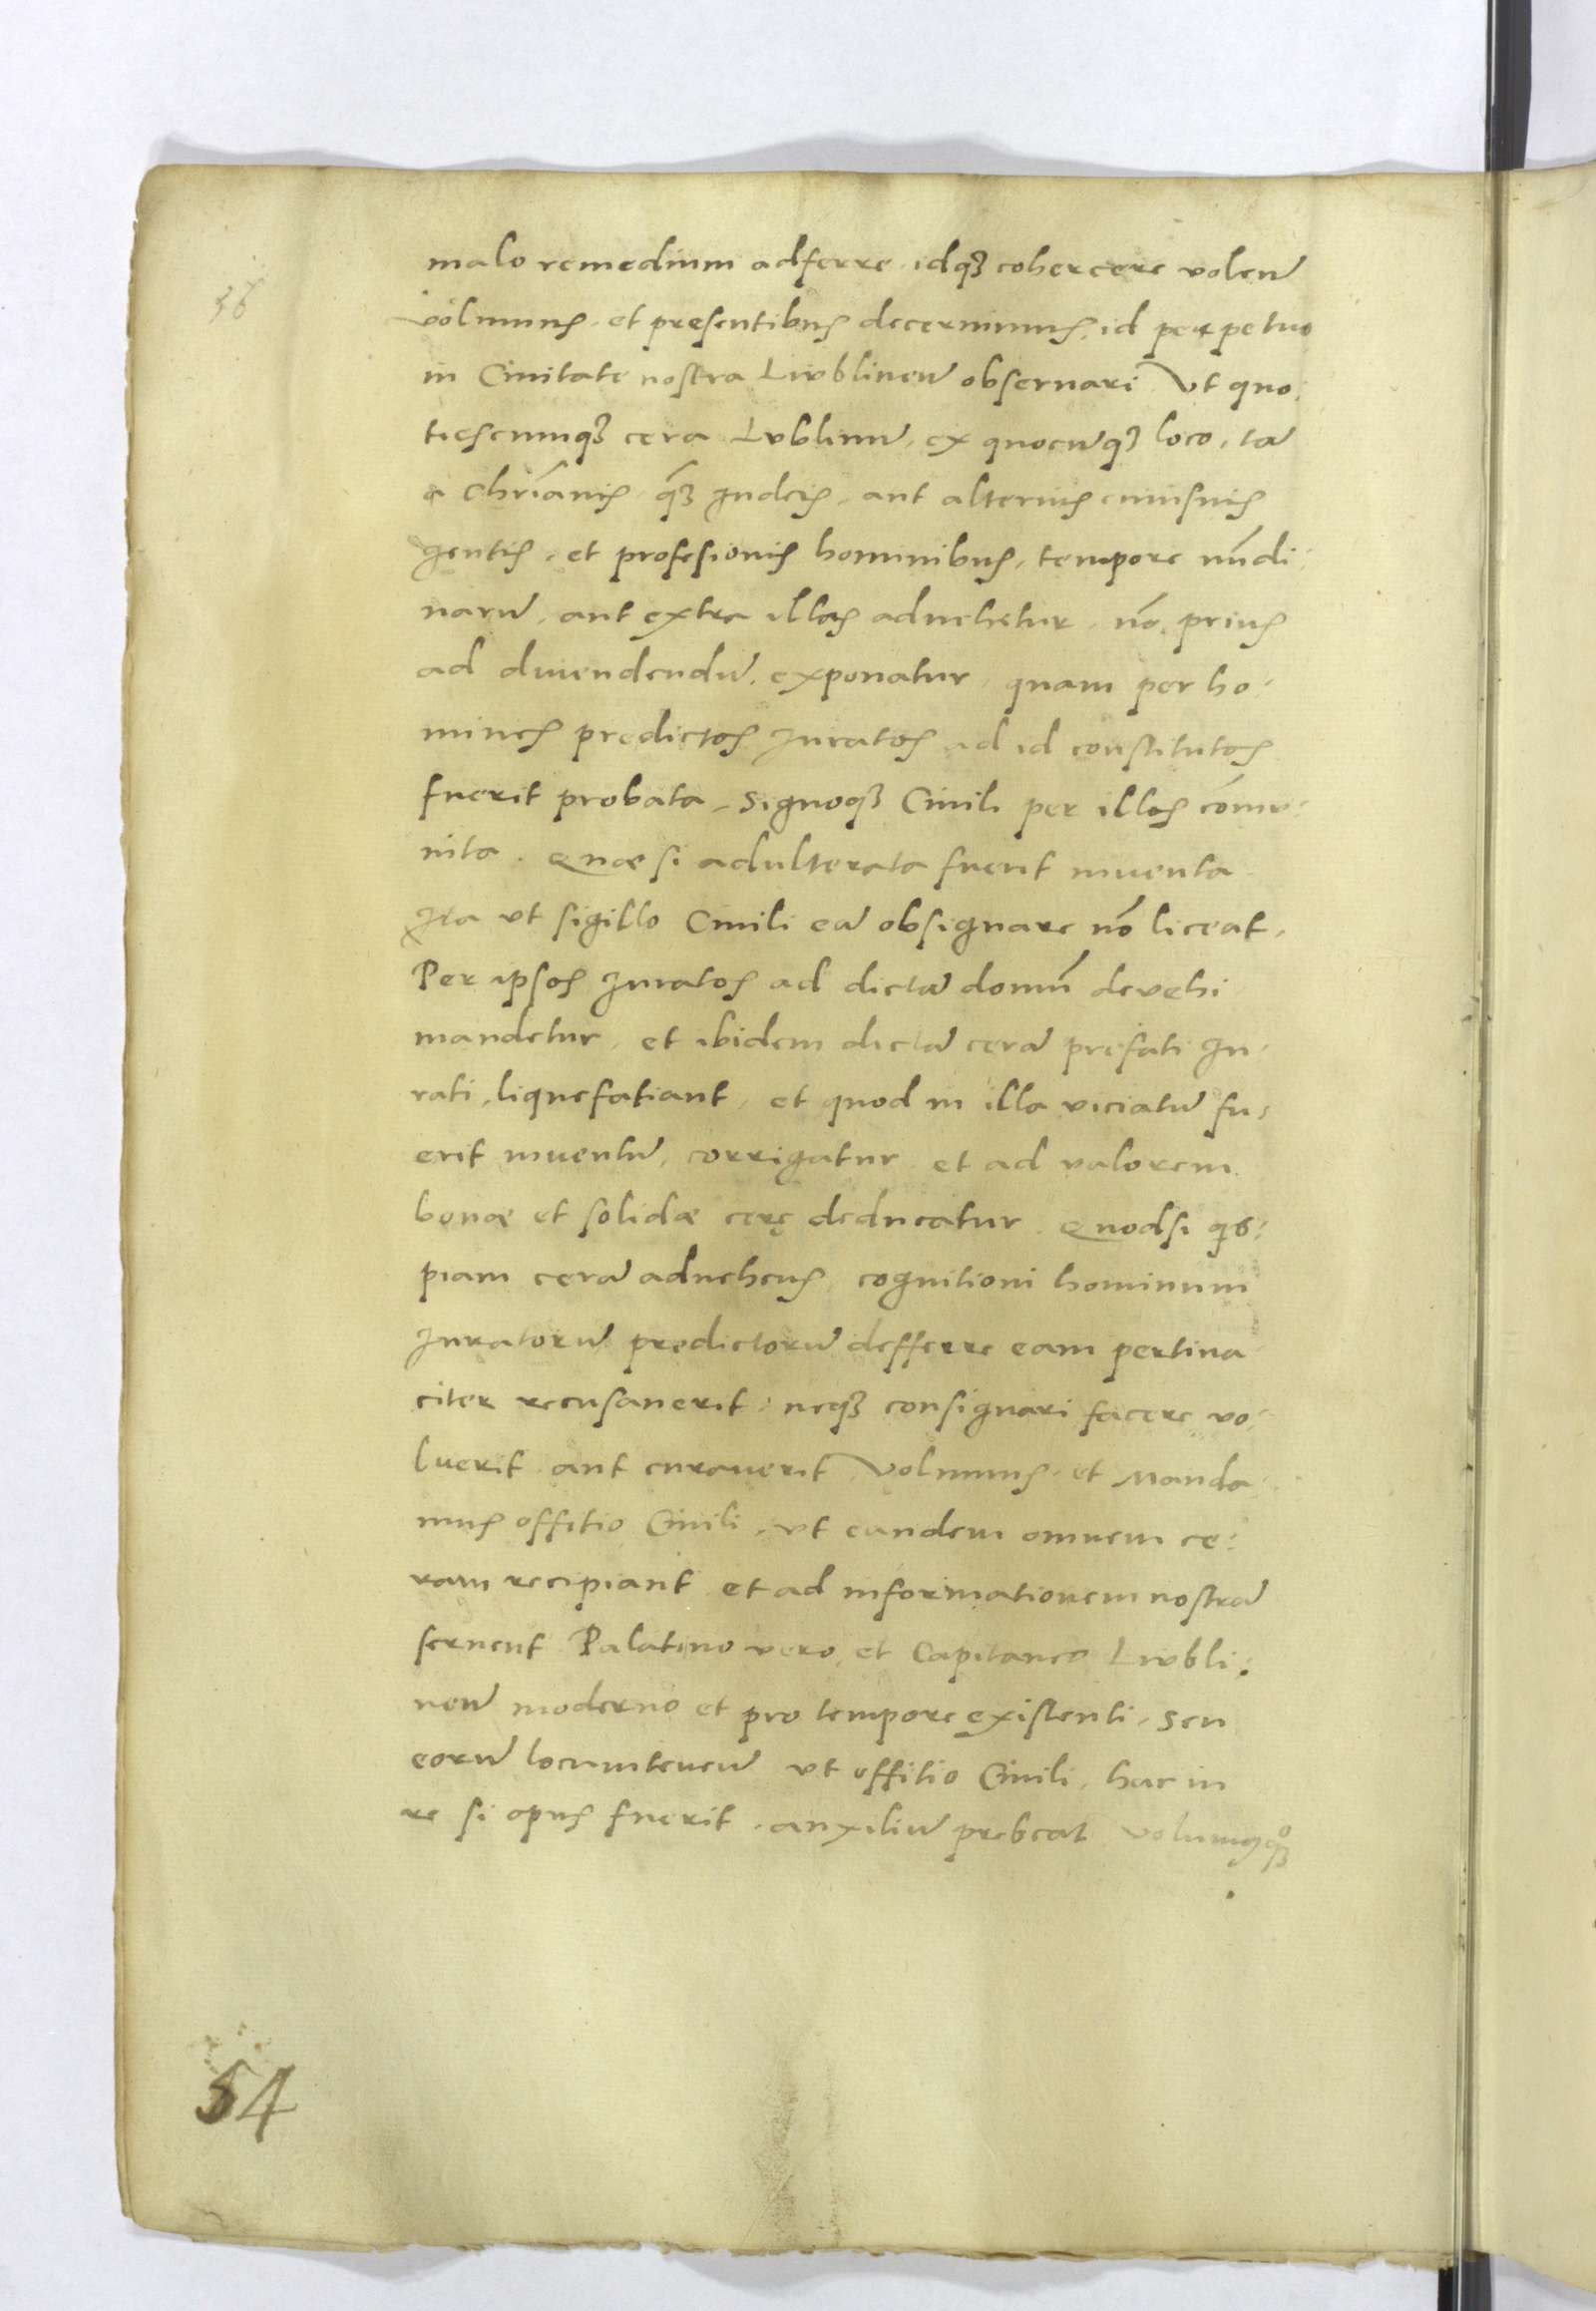 56
malo remedium adferre, idqꝫ cohercere volen̄
volumus, et presentibus decernimus, id perpetuo
in Ciuitate nostra Lwblinen̄ obseruari Vt quo⸗
tiescumqꝫ cera Lvblinū, ex quocūqꝫ loco, tā
a Chr̄ianis qꝫ̄ Iudeis, aut alterius cuiusuis
gentis, et profesionis hominibus, tempore nūdi⸗
narū, aut extra illas aduehetur, nō prius
ad diuendendū, exponatur, quam per ho⸗
mines predictos Iuratos ad id constitutos
fuerit probata, signoqꝫ Ciuili per illos cōmu⸗
nita. Quæ si adulterata fuerit inuenta
Ita vt sigillo Ciuili eā obsignare nō liceat,
Per ipsos Iuratos ad dictā domū devehi
mandetur, et ibidem dictā cerā prefati Iu⸗
rati, liquefatiant, et quod in illa viciatū fu⸗
erit inuentū, corrigatur et ad valorem
bonæ et solidæ cerę deducatur. Quodsi qis⸗
piam cerā aduehens cognitioni hominum
Iuratorū predictorū defferre eam pertina
citer recusauerit, neqꝫ consignari facere vo⸗
lverit aut curauerit Volumus et Manda
mus offitio Ciuili, vt eandem omnem ce⸗
ram recipiant et ad informationem nostrā
seruent Palatino vero et Capitaneo Lwbli⸗
nen̄ moderno et pro tempore existenti, seu
eorū locumtenen̄ vt offitio Ciuili, hac in
re si opus fuerit, auxiliū prebeat volumꝯqꝫ°
54